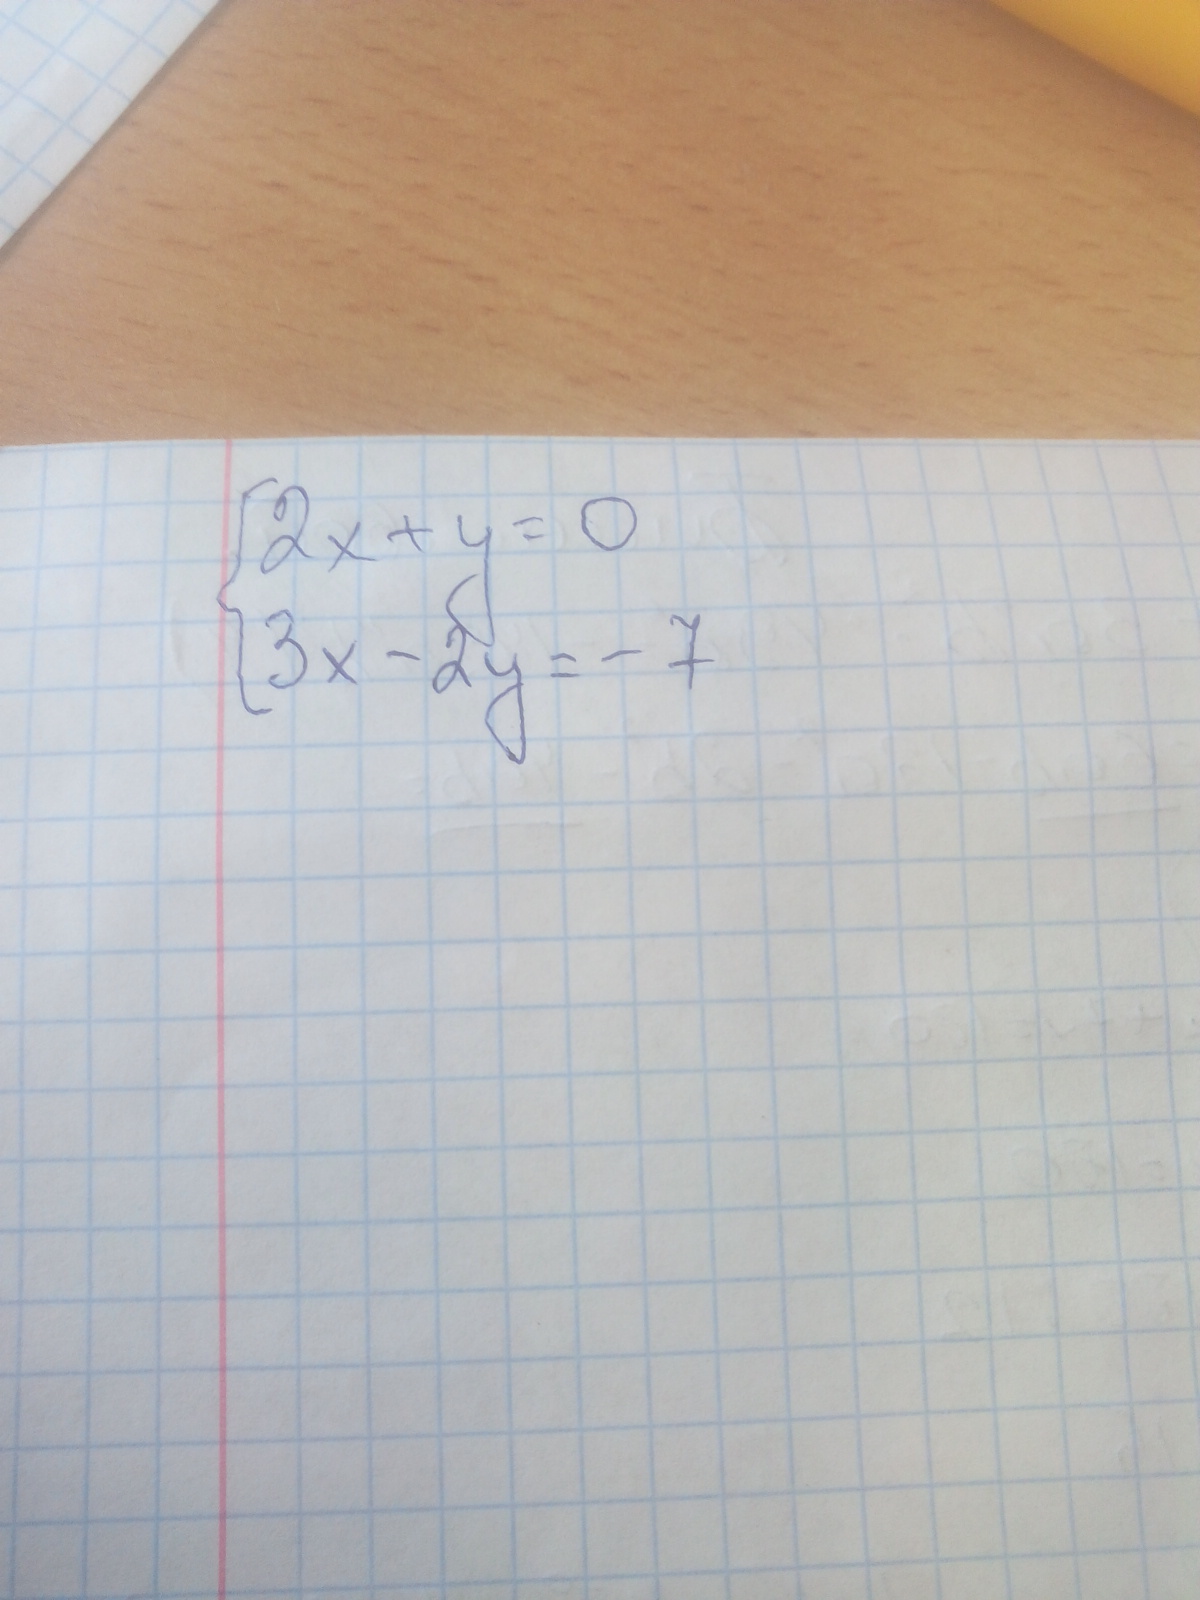 2x + y = 0
3x - 2y = - 7